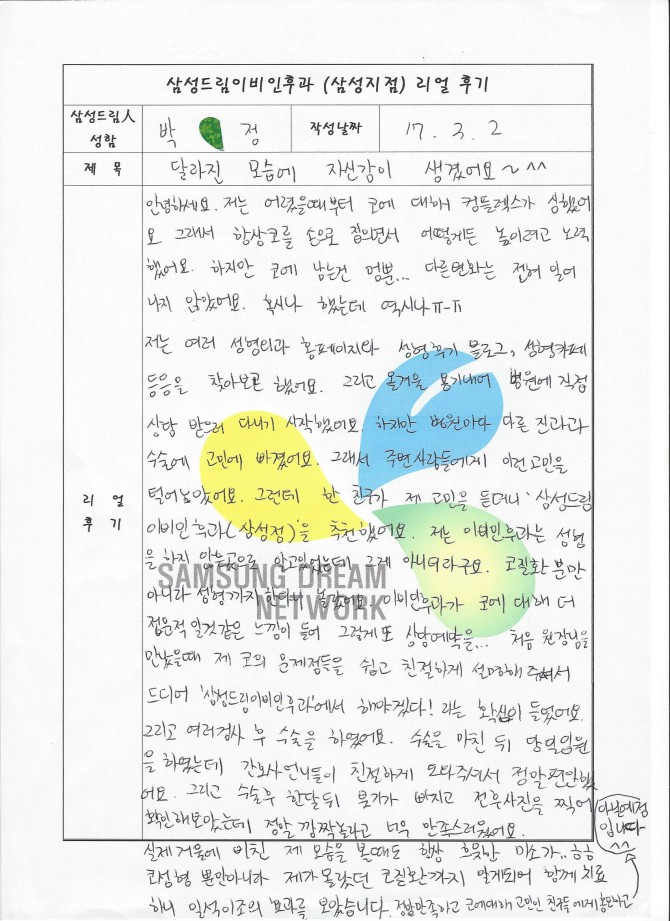 삼성드림이비인후과 (삼성지점) 리얼 후기
삼성드림人 성함 박 정 작성날짜 17. 3. 2
제 목 달라진 모습에 자신감이 생겼어요~^^
리 얼 후 기
안녕하세요. 저는 어렸을때부터 코에 대하여 컴플렉스가 심했어
요. 그래서 항상코를 손으로 집으면서 어떻게든 높이려고 노력
했어요. 하지만 코에 남는건 멍뿐... 다른변화는 전혀 일어
나지 않았어요. 혹시나 했는데 역시나ㅠ-ㅠ
저는 여러 성형외과 홈페이지와 성형후기 블로그, 성형카페
등등을 찾아보곤 했어요. 그리고 올겨울 용기내어 병원에 직접
상담 받으러 다니기 시작했어요. 하지만 병원마다 다른 진과과
수술에 고민에 빠졌어요. 그래서 주변사람들에게 이런고민을
털어놓았어요. 그런데 한 친구가 제 고민을 듣더니 '삼성드림
이비인후과(삼성점)'을 추천했어요. 저는 이비인후과는 성형
을 하지 않는곳으로 알고있었는데 그게 아니더라구요. 코질환 분만
SAMSUNG DREAM
NETWORK
아니라 성형까지 한다니 놀랐어요. 이비인후과가 코에 대해 더
전문적 일것같은 느낌이 들어 그렇게 또 상담예약을... 처음 원장님을
만났을때 제 코의 문제점들을 쉽고 친절하게 설명해 주셔서
드디어 '삼성드림이비인후과'에서 해야겠다! 라는 확심이 들었어요.
그리고 여러검사 후 수술을 하였어요. 수술을 마친 뒤 당일입원
을 하였는데 간호사언니들이 친절하게 도와주셔서 정말편안했
어요. 그리고 수술후 한달뒤 붓기가 빠지고 전후사진을 찍어
확인해보았는데 정말 깜짝놀라고 너무 만족스러웠어요.
실제 거울에 비친 제 모습을 볼때도 항상 흐뭇한 미소가..흐흐
코성형 뿐만아니라 제가몰랐던 코질환까지 알게되어 함께 치료
하니 일석이조의 효과를 보았습니다. 정말만족하고 코에대해 고민인 친구들에게
다닐예정
입니다
^^